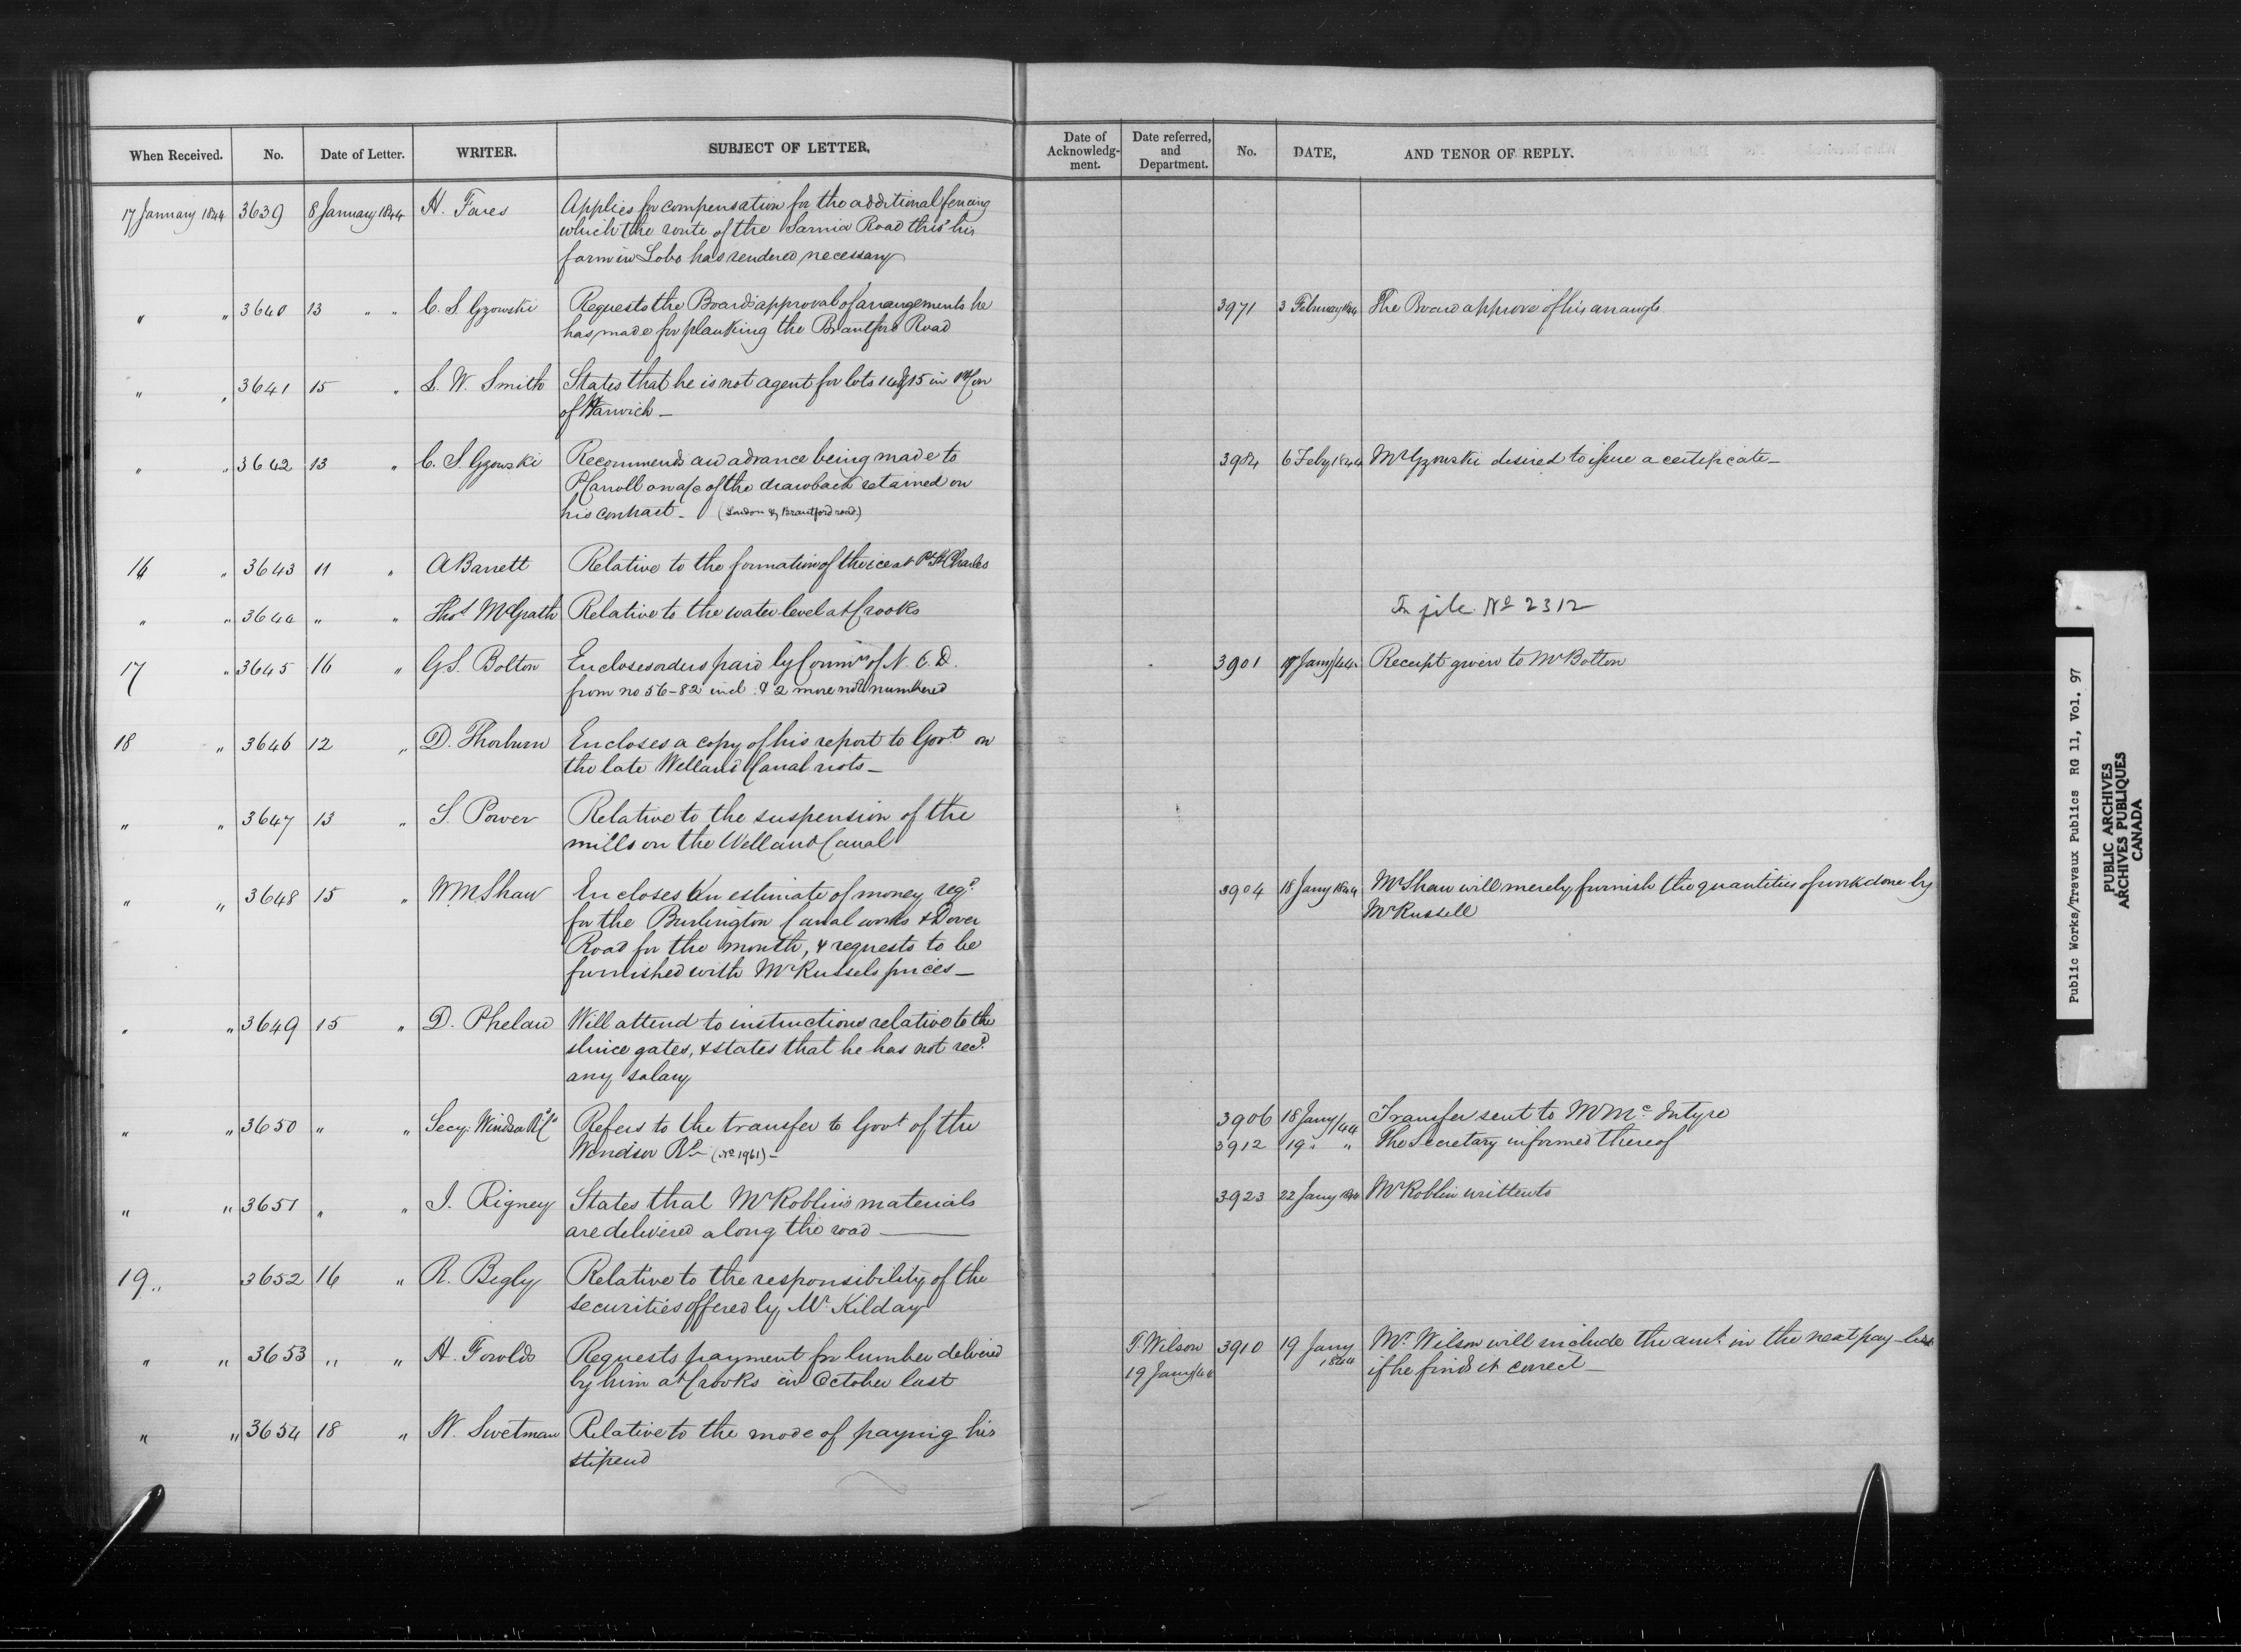 When Received. No. Date of Letter. WRITER. SUBJECT OF LETTER. Date of Acknowledg-ment. Date referred, and Department. No. DATE, AND TENOR OF REPLY.
17 January 1844 3639 8 January 1844 H. Fares Applies for compensation for the additional fencing
which the route of the Sarnia Road thro' his
farm in Lobo has rendered necessary
" " 3640 13 " " C. S. Gzowski Requests the Board's approval of arrangements he 3971 3 February 1844 The Board approve of his arrangts
has made for planking the Brantford Road
" " 3641 15 " L. W. Smith States that he is not agent for lots 14 & 15 in
of Harwich —
" " 3642 13 " C. S. Gzowski Recommends an advance being made to 3984 6 Feby 1844 Mr Gzowski desired to issue a certificate —
P Carroll on a/c of the drawback retained on
his contract — (London & Brantford road)
16 " 3643 11 " A Barrett Relative to the formation of the ice at Pt St Charles
" " 3644 " " Thos McGrath Relative to the water level at Crooks In file No 2312
17 " 3645 16 " G. S. Bolton Encloses orders paid by Commrs of N. C. D. 3901 17 Jany/44 Receipt given to Mr Bolton
from no 56-82 incl. & 2 more not numbered
18 " 3646 12 " D. Thorburn Encloses a copy of his report to Govt on
the late Welland Canal riots —
" " 3647 13 " S. Power Relative to the suspension of the
mills on the Welland Canal
" " 3648 15 " W. M Shaw Encloses an estimate of money reqd 3904 18 Jany 1844 Mr Shaw will merely furnish the quantities of work done by
for the Burlington Canal works & Dover Mr Russell
Road for the month, & requests to be
furnished with Mr Russels prices —
" " 3649 15 " D. Phelan Will attend to instructions relative to the
sluice gates, & states that he has not recd
any salary
" " 3650 " " Secy. Windsor Rd Co Refers to the transfer to Govt of the 3906 18 Jany/44 Transfer sent to Mr McIntyre
Windsor Rd — (No 1961) — 3912 19 " " The Secretary informed thereof
" " 3651 " " J. Rigney States that Mr Roblin's materials 3923 22 Jany 1844 Mr Roblin written to
are delivered along the road —
19 " 3652 16 " R. Begly Relative to the responsibility of the
securities offered by Mr Kilday
" " 3653 " " H. Fowlds Requests payment for lumber delivered T. Wilson 3910 19 Jany Mr. Wilson will include the amt. in the next pay-list
by him at Crooks in October last 19 Jany/44 1844 if he finds it correct —
" " 3654 18 " W. Swetman Relative to the mode of paying his
stipend
Public Works/Travaux Publics RG 11, Vol. 97
PUBLIC ARCHIVES
ARCHIVES PUBLIQUES
CANADA